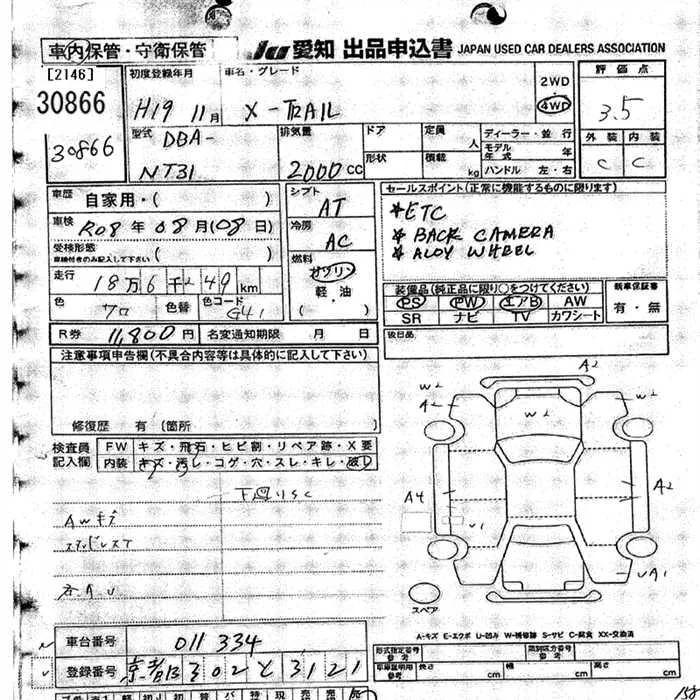 車内保管・守衛保管
Ju 愛知 出品申込書 JAPAN USED CAR DEALERS ASSOCIATION
[2146]
30866
30866
初度登録年月
H19 11月
車名・グレード
X-TRAIL
2WD
4WD
評価点
3.5
外装 内装
C C
型式
DBA-
NT31
排気量
2000cc
ドア
形状
定員 人
積載 kg
ディーラー・並行
モデル年式 年
ハンドル 左・右
車歴 自家用・( )
車検 R08年08月(08日)
受検形態
車検付きのみ記入して下さい ( )
走行 18万6千249km
色 クロ 色替 色コード G41
シフト
AT
冷房
AC
燃料
ガソリン
軽・油
( )
セールスポイント(正常に機能するものに限ります)
*ETC
*BACK CAMERA
*ALOY WHEEL
装備品(純正品に限り○をつけてください)
PS PW エアB AW
SR ナビ TV カワシート
新車保証書
有・無
後日品
R券 11,800円 名変通知期限 月 日
注意事項申告欄(不具合内容等は具体的に記入して下さい)
修復歴 有(箇所
検査員記入欄
FW キズ・飛石・ヒビ割・リペア跡・X要
内装 キズ・汚レ・コゲ・穴・スレ・キレ・破レ
AWキズ
スタッドレスT
A2
W2
A2
W2
W2
A4
A2
U1
UA1
スペア
A-キズ E-エクボ U-凹み W-補修跡 S-サビ C-腐食 XX-交換済
車台番号 011334
登録番号 京都 302 と 3121
形式指定番号
参考
類別区分番号
参考
車庫証明用
参考
長さ cm 幅 cm 高さ cm